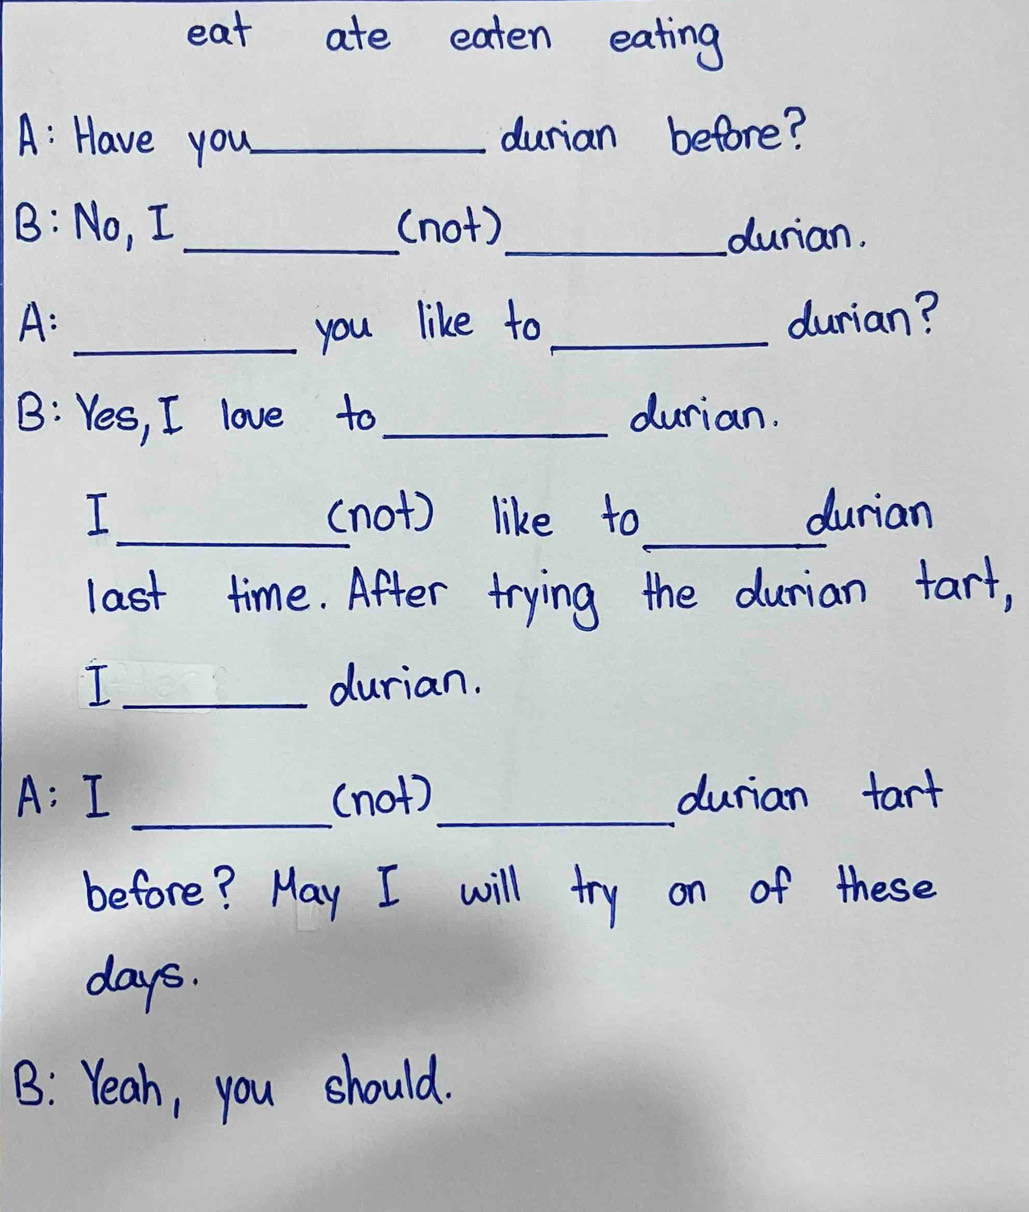 eat ate eaten eating
A: Have you__________ durian before?
B: No, I __________(not)__________durian.
A: __________ you like to __________ durian?
B: Yes, I love to __________ durian.
I __________(not) like to ________durian
last time. After trying the durian tart,
I ________ durian.
A: I __________(not)__________durian tart
before? May I will try on of these
days.
B: Yeah, you should.